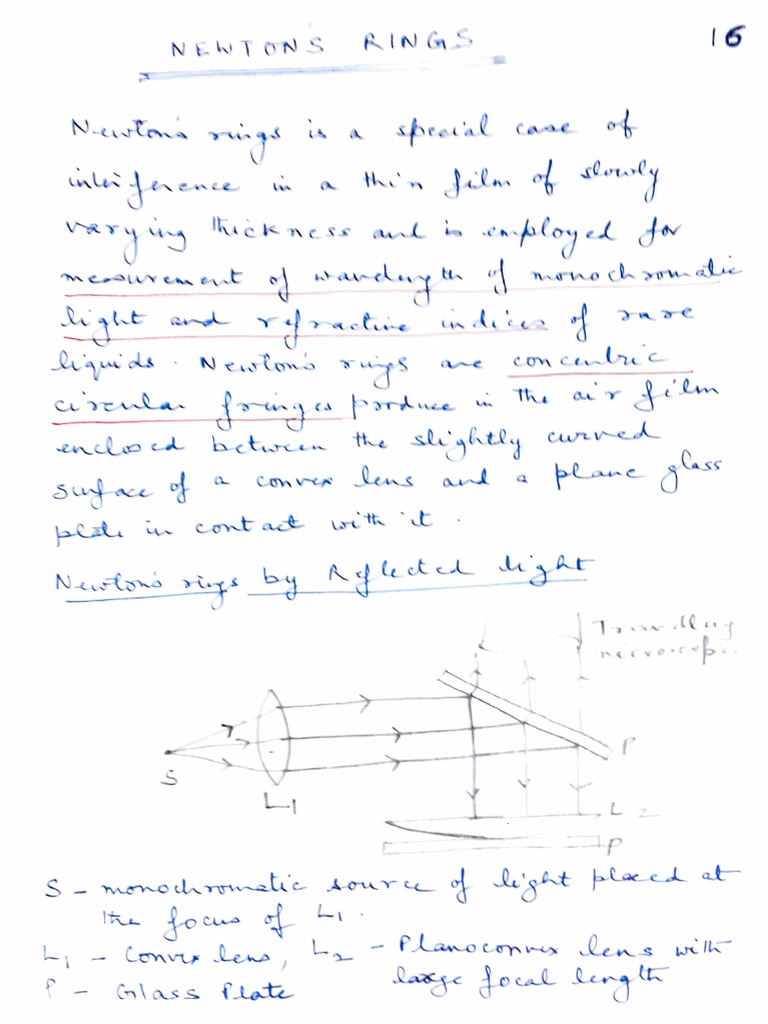 NEWTON'S RINGS
16
Newton's rings is a special case of
interference in a thin film of slowly
varying thickness and is employed for
measurement of wavelength of monochromatic
light and refractive indices of rare
liquids. Newton's rings are concentric
circular fringes produce in the air film
enclosed between the slightly curved
surface of a convex lens and a plane glass
plate in contact with it.
Newton's rings by Reflected light
Travelling
microscope.
P
S
L1
L2
P
S - monochromatic source of light placed at
the focus of L1.
L1 - Convex lens, L2 - Planoconvex lens with
large focal length
P - Glass Plate